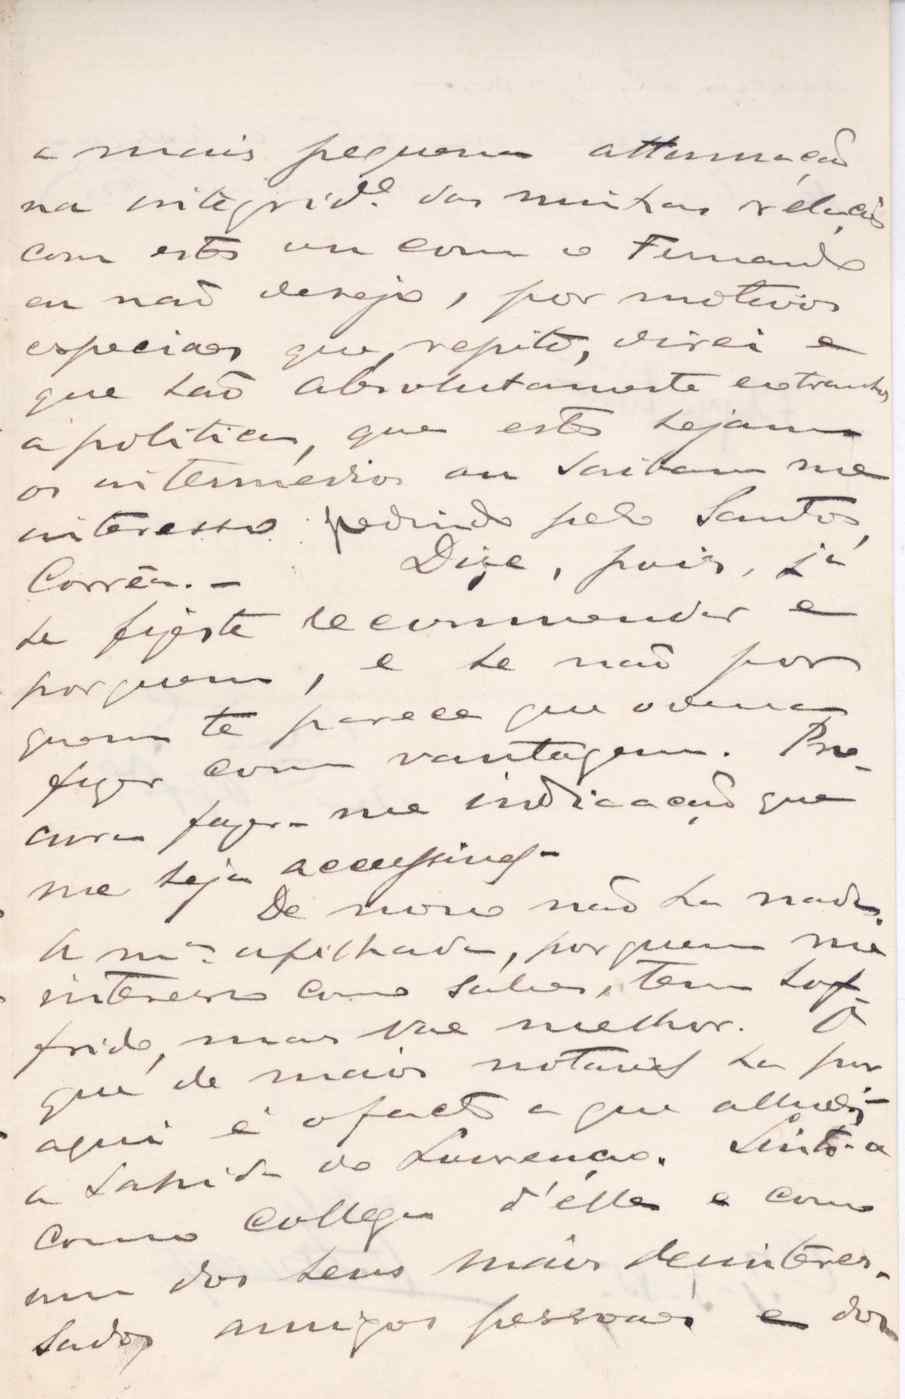 a mais pequena attenuação
na integrid.e das minhas relações
com este ou com o Fernando
eu não desejo, por motivos
especiaes que, repito, direi e
que são absolutamente extranhos
á politica, que estes sejam
os intermedios ou saibam me
interesso pedindo pelo Santos
Corrêa. — Dize, pois, já
se fizeste recommendar e
por quem, e se não por
quem te parece que o devia
fazer com vantagem. Pro-
cura fazer-me indicação que
me seja accessivel —
De novo não ha nada.
A m.a afilhada, por quem me
interesso como sabes, tem sof-
frido, mas vae melhor. O
que de mais notavel ha por
aqui é o facto a que alludi —
a sahida do Lourenço. Sinto-a
como collega d'elle e como
um dos seus mais desinteres-
sados amigos pessoaes e dos